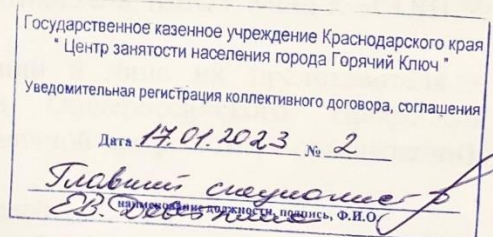 Государственное казенное учреждение Краснодарского края
" Центр занятости населения города Горячий Ключ "
Уведомительная регистрация коллективного договора, соглашения
Дата 17.01.2023 № 2
Главный специалист
Е.В.
наименование должности, подпись, Ф.И.О.